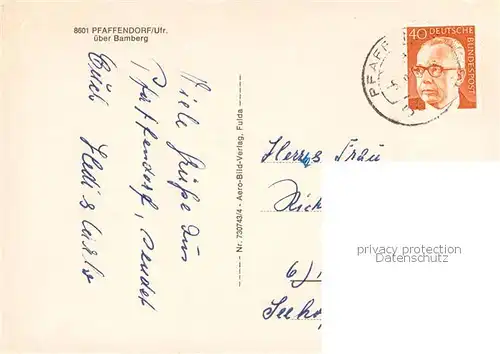 8601 PFAFFENDORF/Ufr.
über Bamberg
Viele Grüße aus
Pfaffendorf, sendet
Euch Hedi &
Nr. 730743/4 - Aero-Bild-Verlag, Fulda
PFAFF
40
DEUTSCHE
BUNDESPOST
Herrn & Frau
Rich
6
Seeho
privacy protection